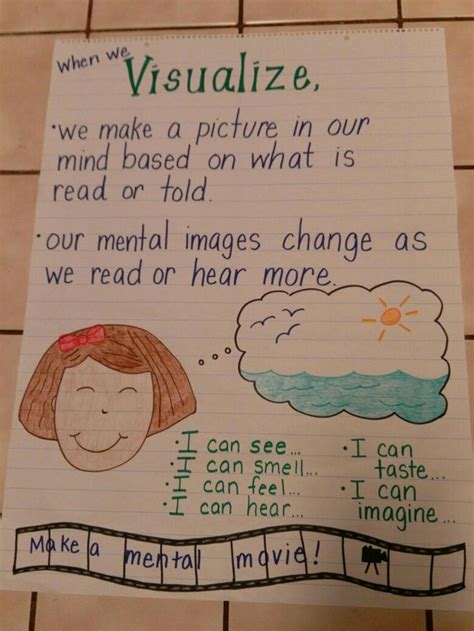 When we
Visualize,
•we make a picture in our
mind based on what is
read or told.
•our mental images change as
we read or hear more.
•I can see...
•I can smell...
•I can feel...
•I can hear...
•I can
taste...
•I can
imagine...
Make a mental movie!